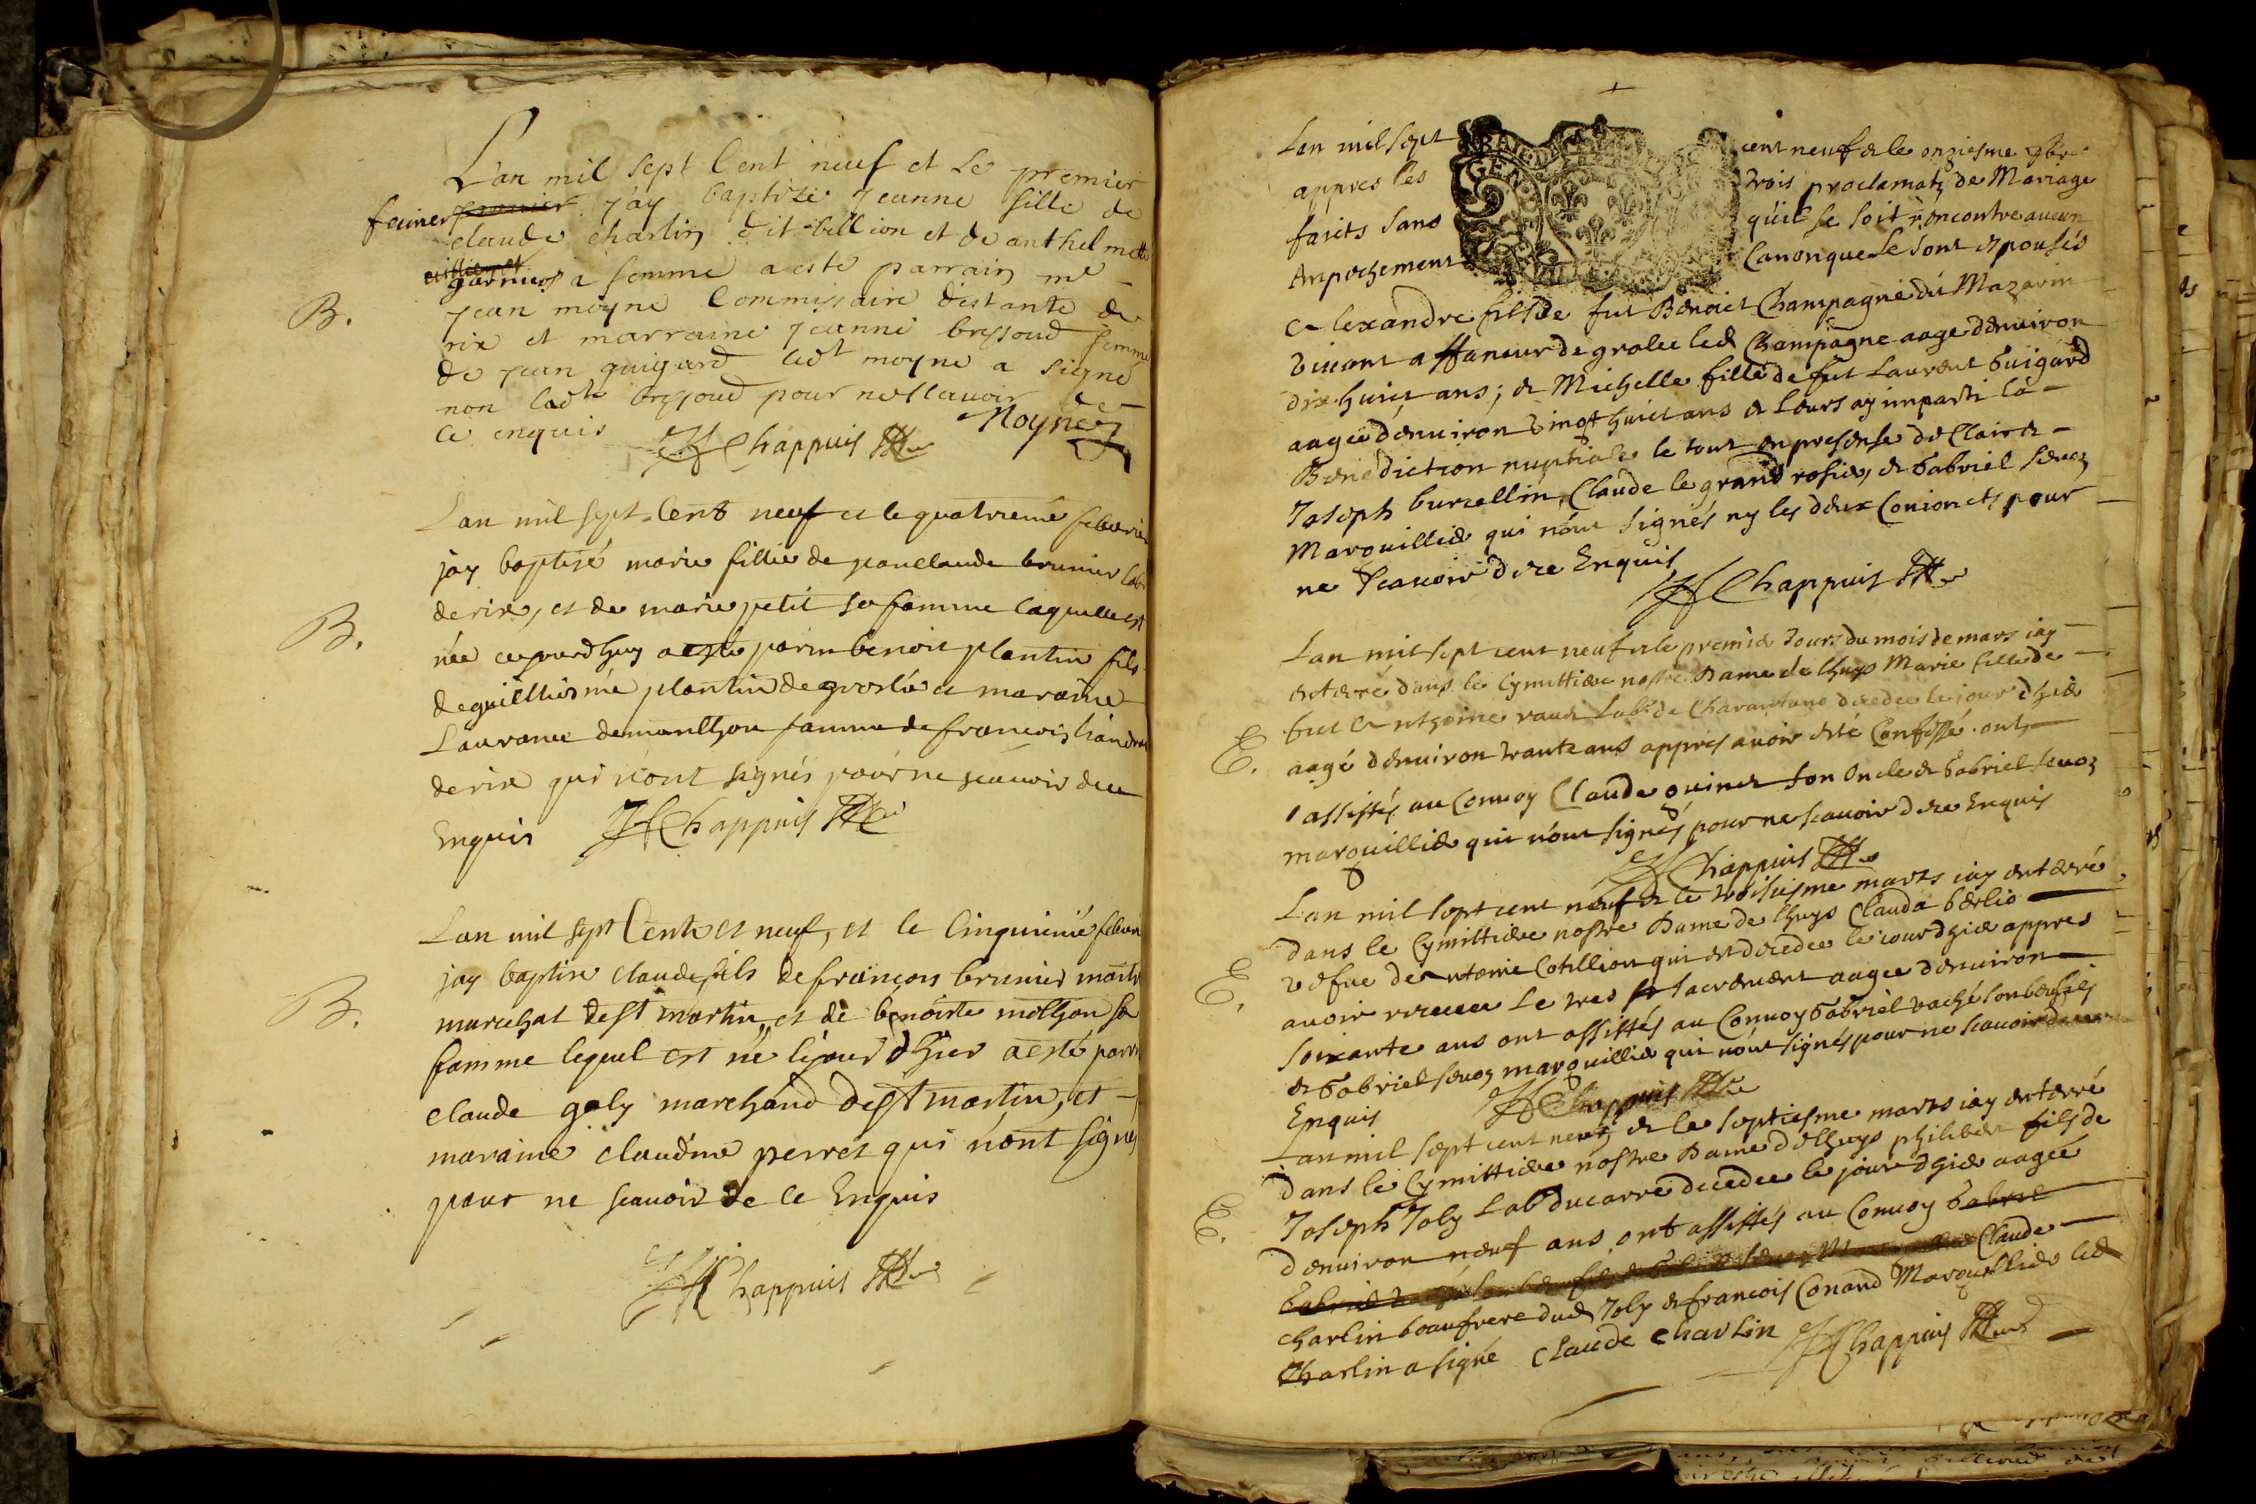 L'an mil sept Cent neuf et le premier
feuirer premier j'ay baptizé Jeanne fille de
claude charlin dit billion et de anthelmette
garnier sa femme a esté parrain me
jean moyne Commissaire distante de
rix et marraine jeanne bressoud femme
de jean guigard ledt moyne a signé
non ladte bressoud pour ne scauoir de
ce enquis JChappuis Moyne
B.
Lan mil sept Cent neuf et le quatrieme feburier
jay baptisé marie fillie de janclaude brunier lab
de rix, et de marie petit sa famme laquelle est
née aujourdhuy a esté parin benoit plantin fils
de guilliesme plantin de groslée et maraine
Laurance demonlhon famme de francois
de rix qui nont signés pour ne scauoir dece
Enquis JChappuis
B.
Lan mil sept Cent et neuf, et le Cinquieme feburier
jay baptise claude fils de francois brunier maitre
marechal de st martin, et de benoiste molhon sa
famme lequel est né le jour dhier a esté parin
claude goly marchand de st martin, et
maraine claudine perret qui n'ont signés
pour ne scauoir de ce Enquis
JChappuis
B.
Lan mil sept cent neuf & le onziesme
appres les trois proclamatz de Mariage
faicts sans qu'il se soit rencontre aucun
Ampechement Canonique se sont espousés
Alexandre fils de fut Benoict Champagne du Mazarin
viuant affaneur de grolee led Champagne aage denuiron
dix huict ans; & Michelle fille de fut Laurent Guigard
aagée denuiron vingt huict ans & leurs ay imparti la
Benediction nuptiale le tout en presense de Clair &
Joseph burcellin, Claude le grand rosier, & Gabriel seuoz
Marguillier qui n'ont signés ny les deux Conioncts pour
ne Scauoir dece Enquis
JChappuis
Lan mil sept cent neuf & le premier Jours du mois de mars iay
enterré dans le Cymittiere nostre Dame de lhuys Marie fille de
fut Anthoine raud Labr de Charantano decedee le jour dhier
aagé denuiron trante ans appres auoir esté Confessé. ont
assistés au Conuoy Claude quinet son Oncle & Gabriel seuoz
marguillier qui n'ont signés pour ne scauoir dece Enquis
JChappuis
E.
Lan mil sept cent neuf & le troisiesme marts iay enterré
dans le Cymittiere nostre Dame de lhuys Clauda berlio
vefue de Antoine Cotillion qui est decedee le iour dhier appres
auoir receu le tres st sacrement aagee denuiron
soixante ans ont assistés au Conuoy Gabriel vaché son beaufils
& Gabriel seuoz marguillier qui n'ont signés pour ne scauoir dece
Enquis JChappuis
E.
Lan mil sept cent neuf & le septiesme marts iay enterré
dans le Cymittiere nostre Dame de lhuys philibert fils de
Joseph Joly Lab ducarre decedee le jour dhier aagée
denuiron neuf ans ont assistés au Conuoy Gabriel
Gabriel vaché son beaufils & Gabriel seuoz Claude
charlin beaufrere dud Joly & francois Conand Marguillier led
Charlin a signé Claude charlin JChappuis
E.